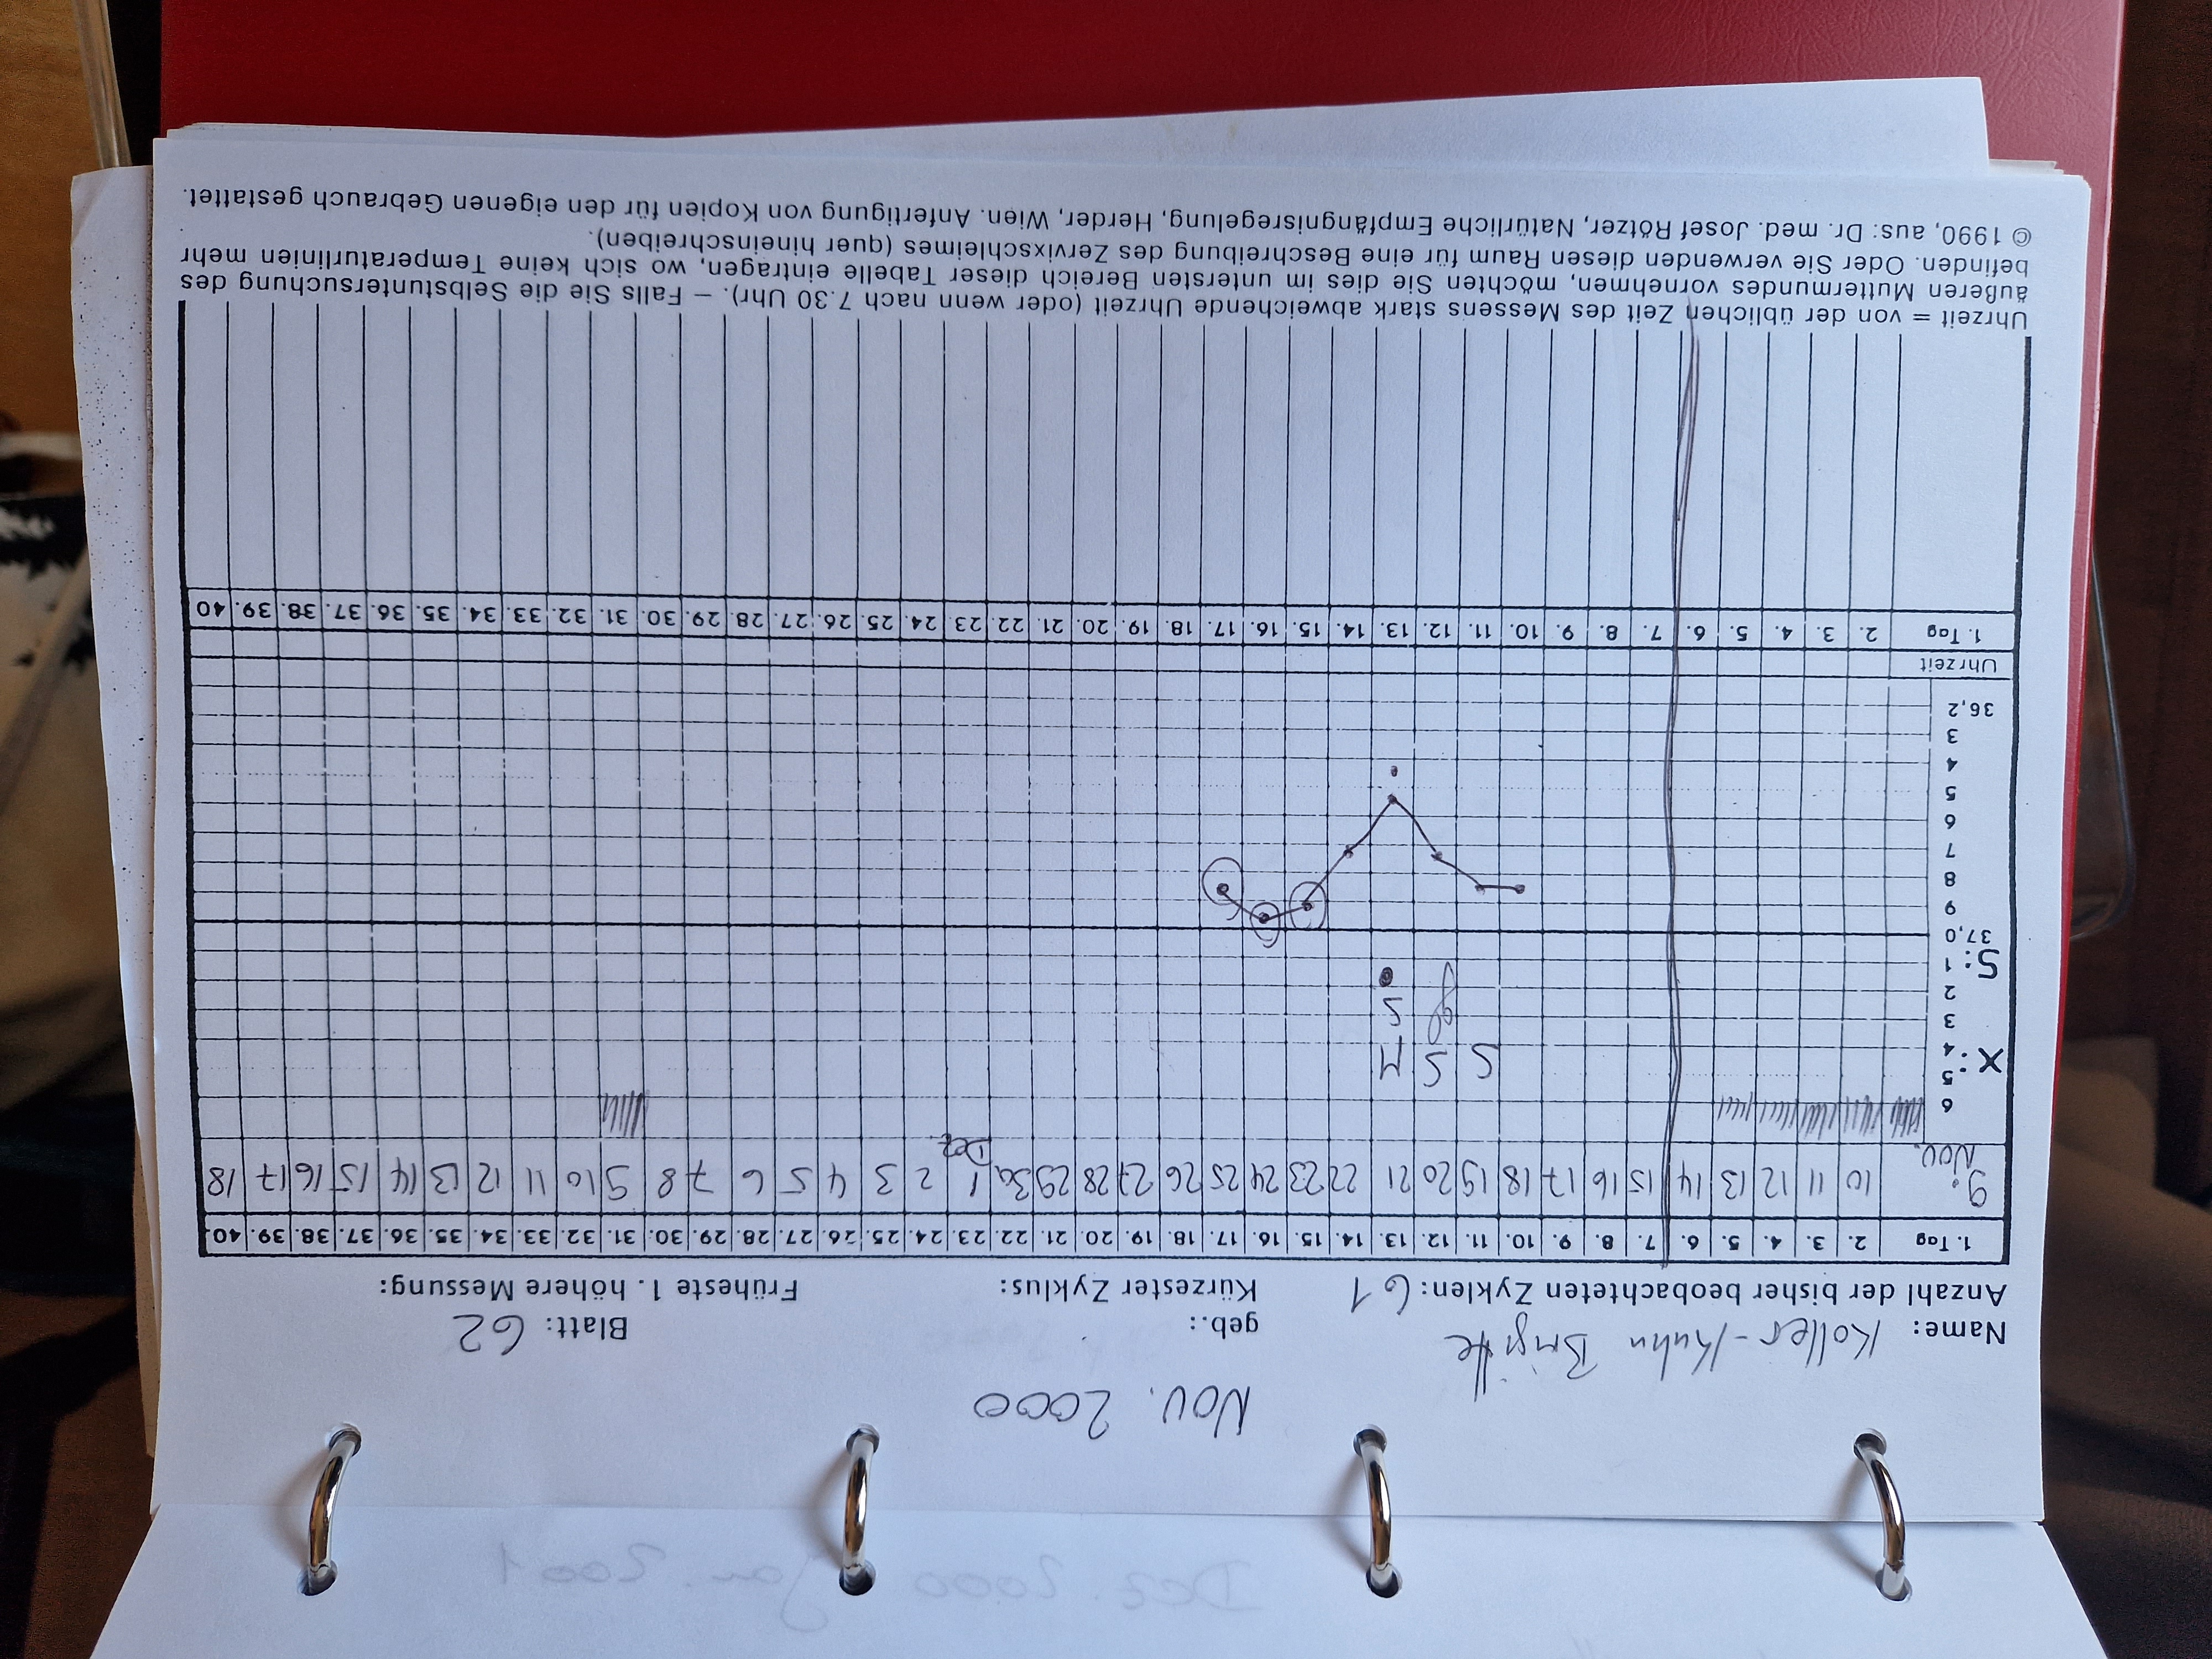 Dez. 2000 Jan. 2001
Nov. 2000
Name: Koller-Kuhn Brigitte geb.: Blatt: 62
Anzahl der bisher beobachteten Zyklen: 61 Kürzester Zyklus: Früheste 1. höhere Messung:
1. Tag 2. 3. 4. 5. 6. 7. 8. 9. 10. 11. 12. 13. 14. 15. 16. 17. 18. 19. 20. 21. 22. 23. 24. 25. 26. 27. 28. 29. 30. 31. 32. 33. 34. 35. 36. 37. 38. 39. 40.
9. 10 11 12 13 14 15 16 17 18 19 20 21 22 23 24 25 26 27 28 29 30 1 2 3 4 5 6 7 8 9 10 11 12 13 14 15 16 17 18
Nov. Dez.
6
X: 5
4 S S M
3 gl S
2
S: 1
37,0
9
8
7
6
5
4
3
36,2
Uhrzeit
1. Tag 2. 3. 4. 5. 6. 7. 8. 9. 10. 11. 12. 13. 14. 15. 16. 17. 18. 19. 20. 21. 22. 23. 24. 25. 26. 27. 28. 29. 30. 31. 32. 33. 34. 35. 36. 37. 38. 39. 40
Uhrzeit = von der üblichen Zeit des Messens stark abweichende Uhrzeit (oder wenn nach 7.30 Uhr). — Falls Sie die Selbstuntersuchung des
äußeren Muttermundes vornehmen, möchten Sie dies im untersten Bereich dieser Tabelle eintragen, wo sich keine Temperaturlinien mehr
befinden. Oder Sie verwenden diesen Raum für eine Beschreibung des Zervixschleimes (quer hineinschreiben).
© 1990, aus: Dr. med. Josef Rötzer, Natürliche Empfängnisregelung, Herder, Wien. Anfertigung von Kopien für den eigenen Gebrauch gestattet.